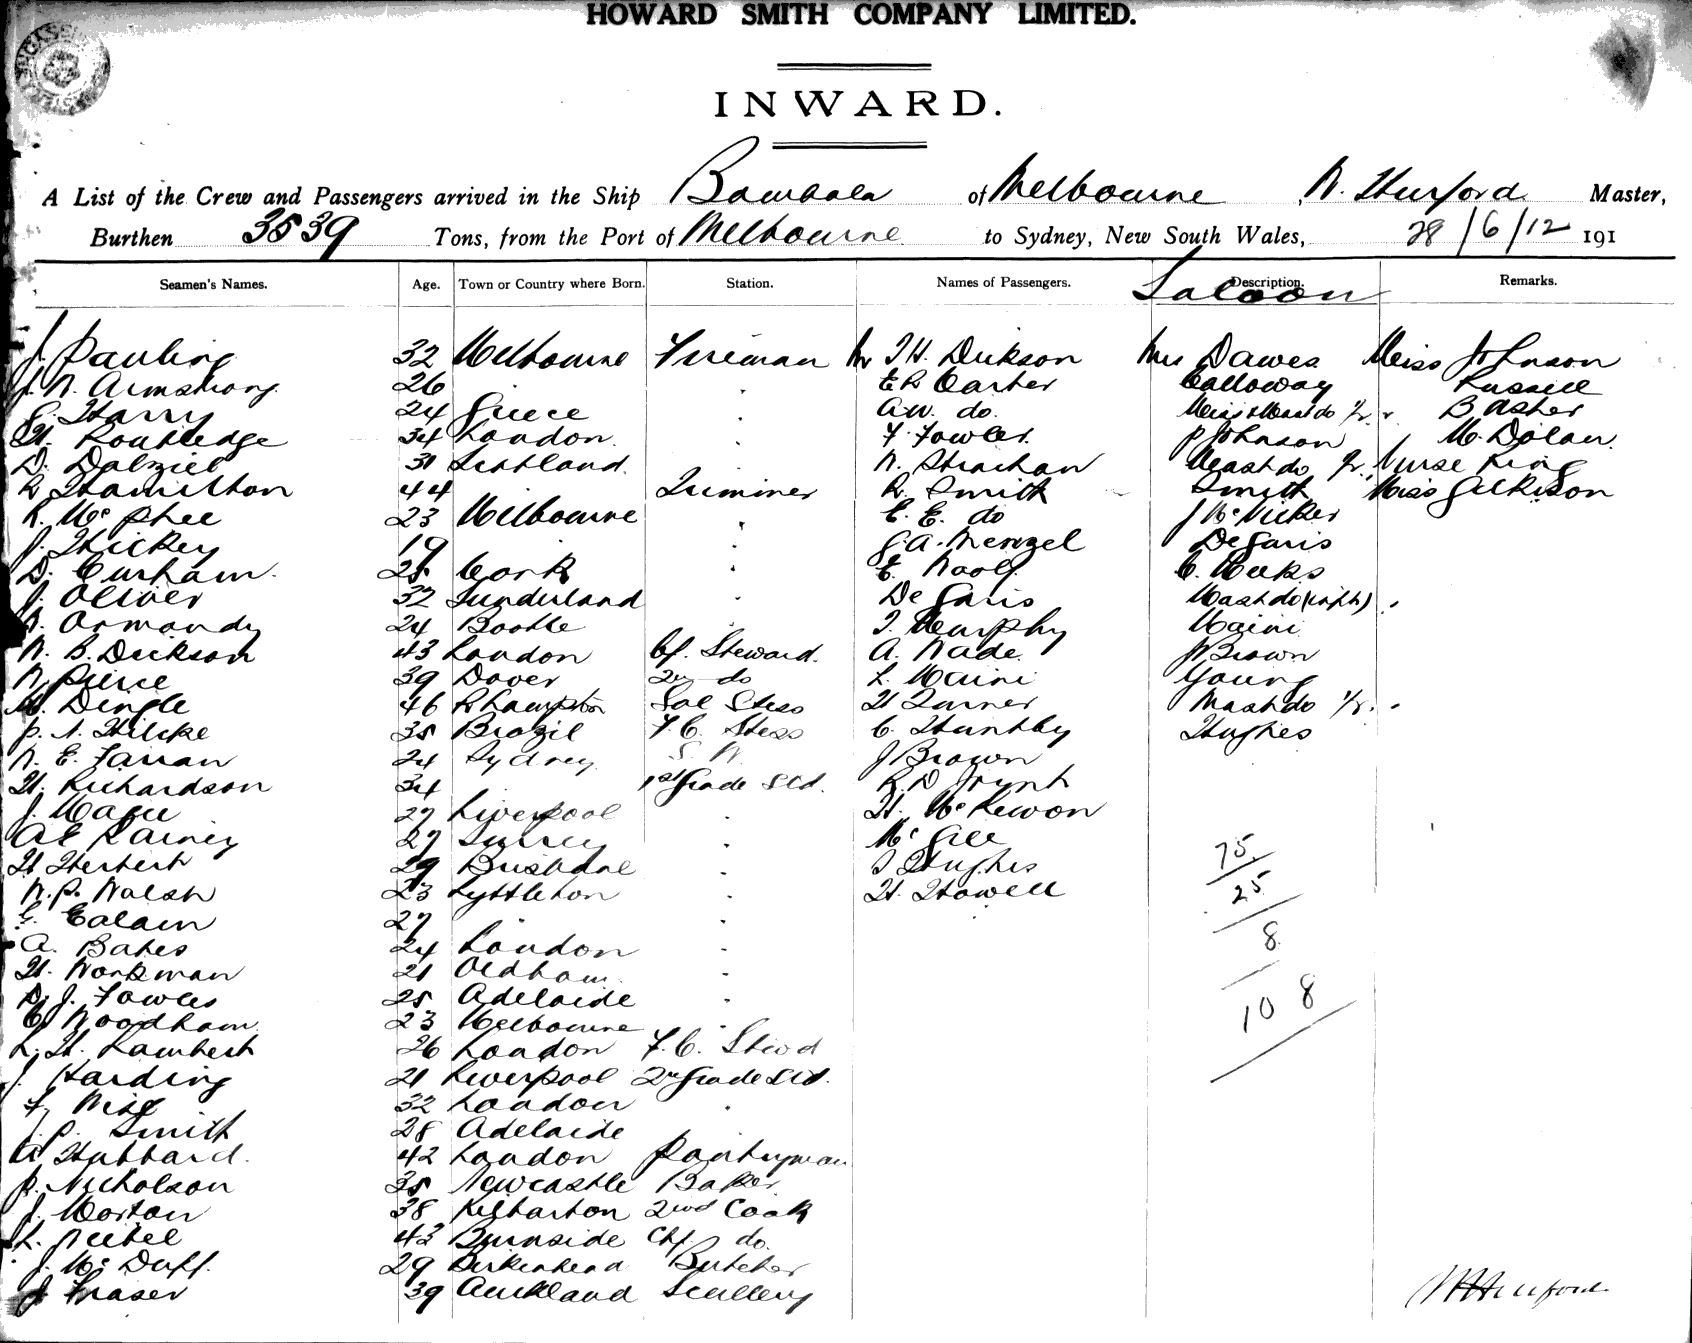 HOWARD SMITH COMPANY LIMITED.
INWARD.
A List of the Crew and Passengers arrived in the Ship Bombala of Melbourne N. Hurford Master,
Burthen 3539 Tons, from the Port of Melbourne to Sydney, New South Wales, 28/6/12 191
Seamen's Names. Age. Town or Country where Born. Station. Names of Passengers. Description. Remarks.
Saloon
J. Pauling 32 Melbourne Fireman Mr T.H. Dickson Mrs Dawes Miss Johnson
J. N. Armstrong 26 E R Carter Calloway Russell
G. Harry 24 Greece A.W. do. B Asher
H. Routledge 34 London F. Fowler P Johnson M. Dolan
D. Dalziel 31 Scotland N. Strachan Mast do Nurse King
R Hamilton 44 Trimmer R. Smith Smith Miss Gilkison
R. McPhee 23 Melbourne E. E. do J McVicker
J. Hickey 19 G.A. Menzel De Garis
D. Curham 25 Cork E. C. Meeks
J. Oliver 32 Sunderland De Garis Mast do (inft)
N. Ormandy 24 Bootle T. Murphy Maini
N. B. Dickson 43 London Cf. Steward. A. Wade J Brown
N Pierce 39 Dover 2nd do L. Maini Young
M. Dingle 46 Sal Stess H Turner Mast do
P. A. Hilcke 35 Brazil F. C. Stess C. Huntley Hughes
N. E. Farran 24 Sydney S. W J Brown
H. Richardson 34 1st Grade Std. R. D
J. Magee 27 Liverpool H. McKewon
A E Rainey 27 Surrey McGee
H Herbert 29 Brisbane T Hughes 75
N. P. Walsh 23 Lyttleton H. Howell 25
G. Ealam 27
A. Bates 24 London 8
H. Workman 21 Oldham
D. J. Fowles 25 Adelaide 108
C J Woodham 23 Melbourne
L. H. Lambert 26 London F. C. Stwd
J. Harding 21 Liverpool 2nd Grade Std.
F. Wise 32 London
J. P. Smith 28 Adelaide
A Hubbard. 42 London Pantryman
P. Nicholson 35 Newcastle Baker
J. Morton 38 Kilbarton 2nd Cook
L. Peibel 43 Burnside Chf. do.
J. McDuff. 29 Birkenhead Butcher
J Fraser 39 Auckland Scullery
N Hurford